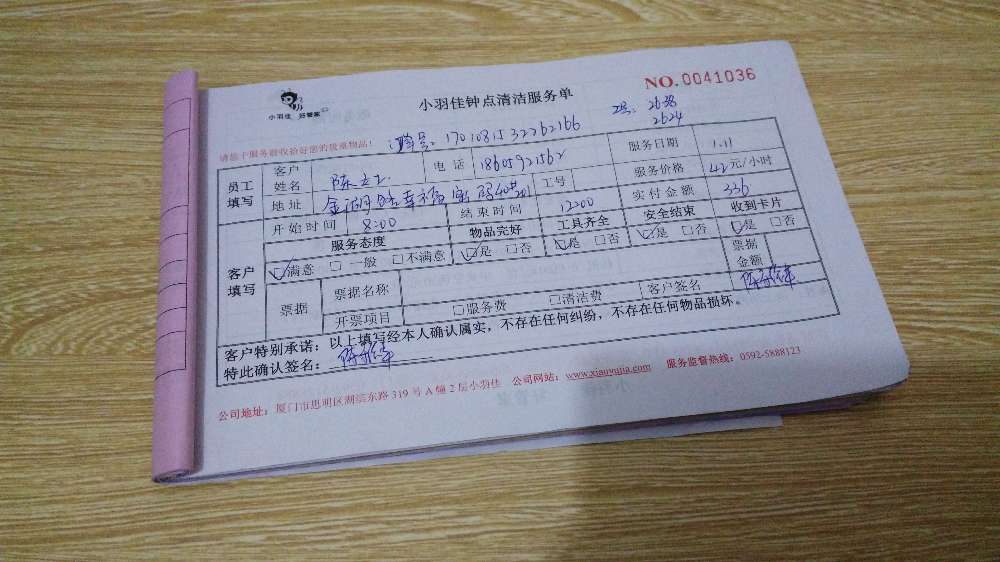 小羽佳 好管家
小羽佳钟点清洁服务单
NO.0041036
工号: 2638
2624
请您于服务前收拾好您的贵重物品!
单号: 1701081532262166
员工填写
客户姓名 陈女士 电话 18605921562 服务日期 1.11
地址 工号 服务价格 42元/小时
开始时间 8:00 结束时间 12:00 实付金额 336
客户填写
服务态度 物品完好 工具齐全 安全结束 收到卡片
☑满意 □一般 □不满意 ☑是 □否 ☑是 □否 ☑是 □否 ☑是 □否
票据 票据名称 票据金额
开票项目 □服务费 □清洁费 客户签名
客户特别承诺:以上填写经本人确认属实,不存在任何纠纷,不存在任何物品损坏。
特此确认签名:
公司地址:厦门市思明区湖滨东路 319 号 A 幢 2 层小羽佳 公司网站:www.xiaoyujia.com 服务监督热线:0592-5888123